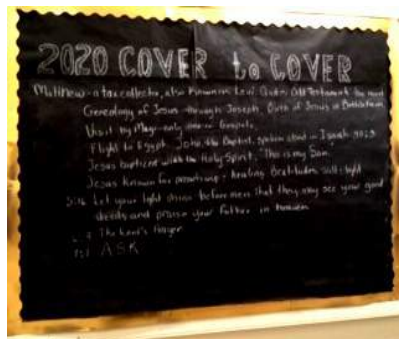 2020 COVER to COVER
Matthew - a tax collector, also known as Levi Quotes Old Testament the most
Genealogy of Jesus through Joseph. Birth of Jesus in Bethlehem
Visit by Magi - only one in Gospels.
Flight to Egypt. John the Baptist, spoken about in Isaiah
Jesus baptized with the Holy Spirit. "This is my Son"
Jesus known for preaching & healing Beatitudes salt & light
5:16 Let your light shine before men that they may see your good
deeds and praise your Father in heaven
The Lord's Prayer
ASK